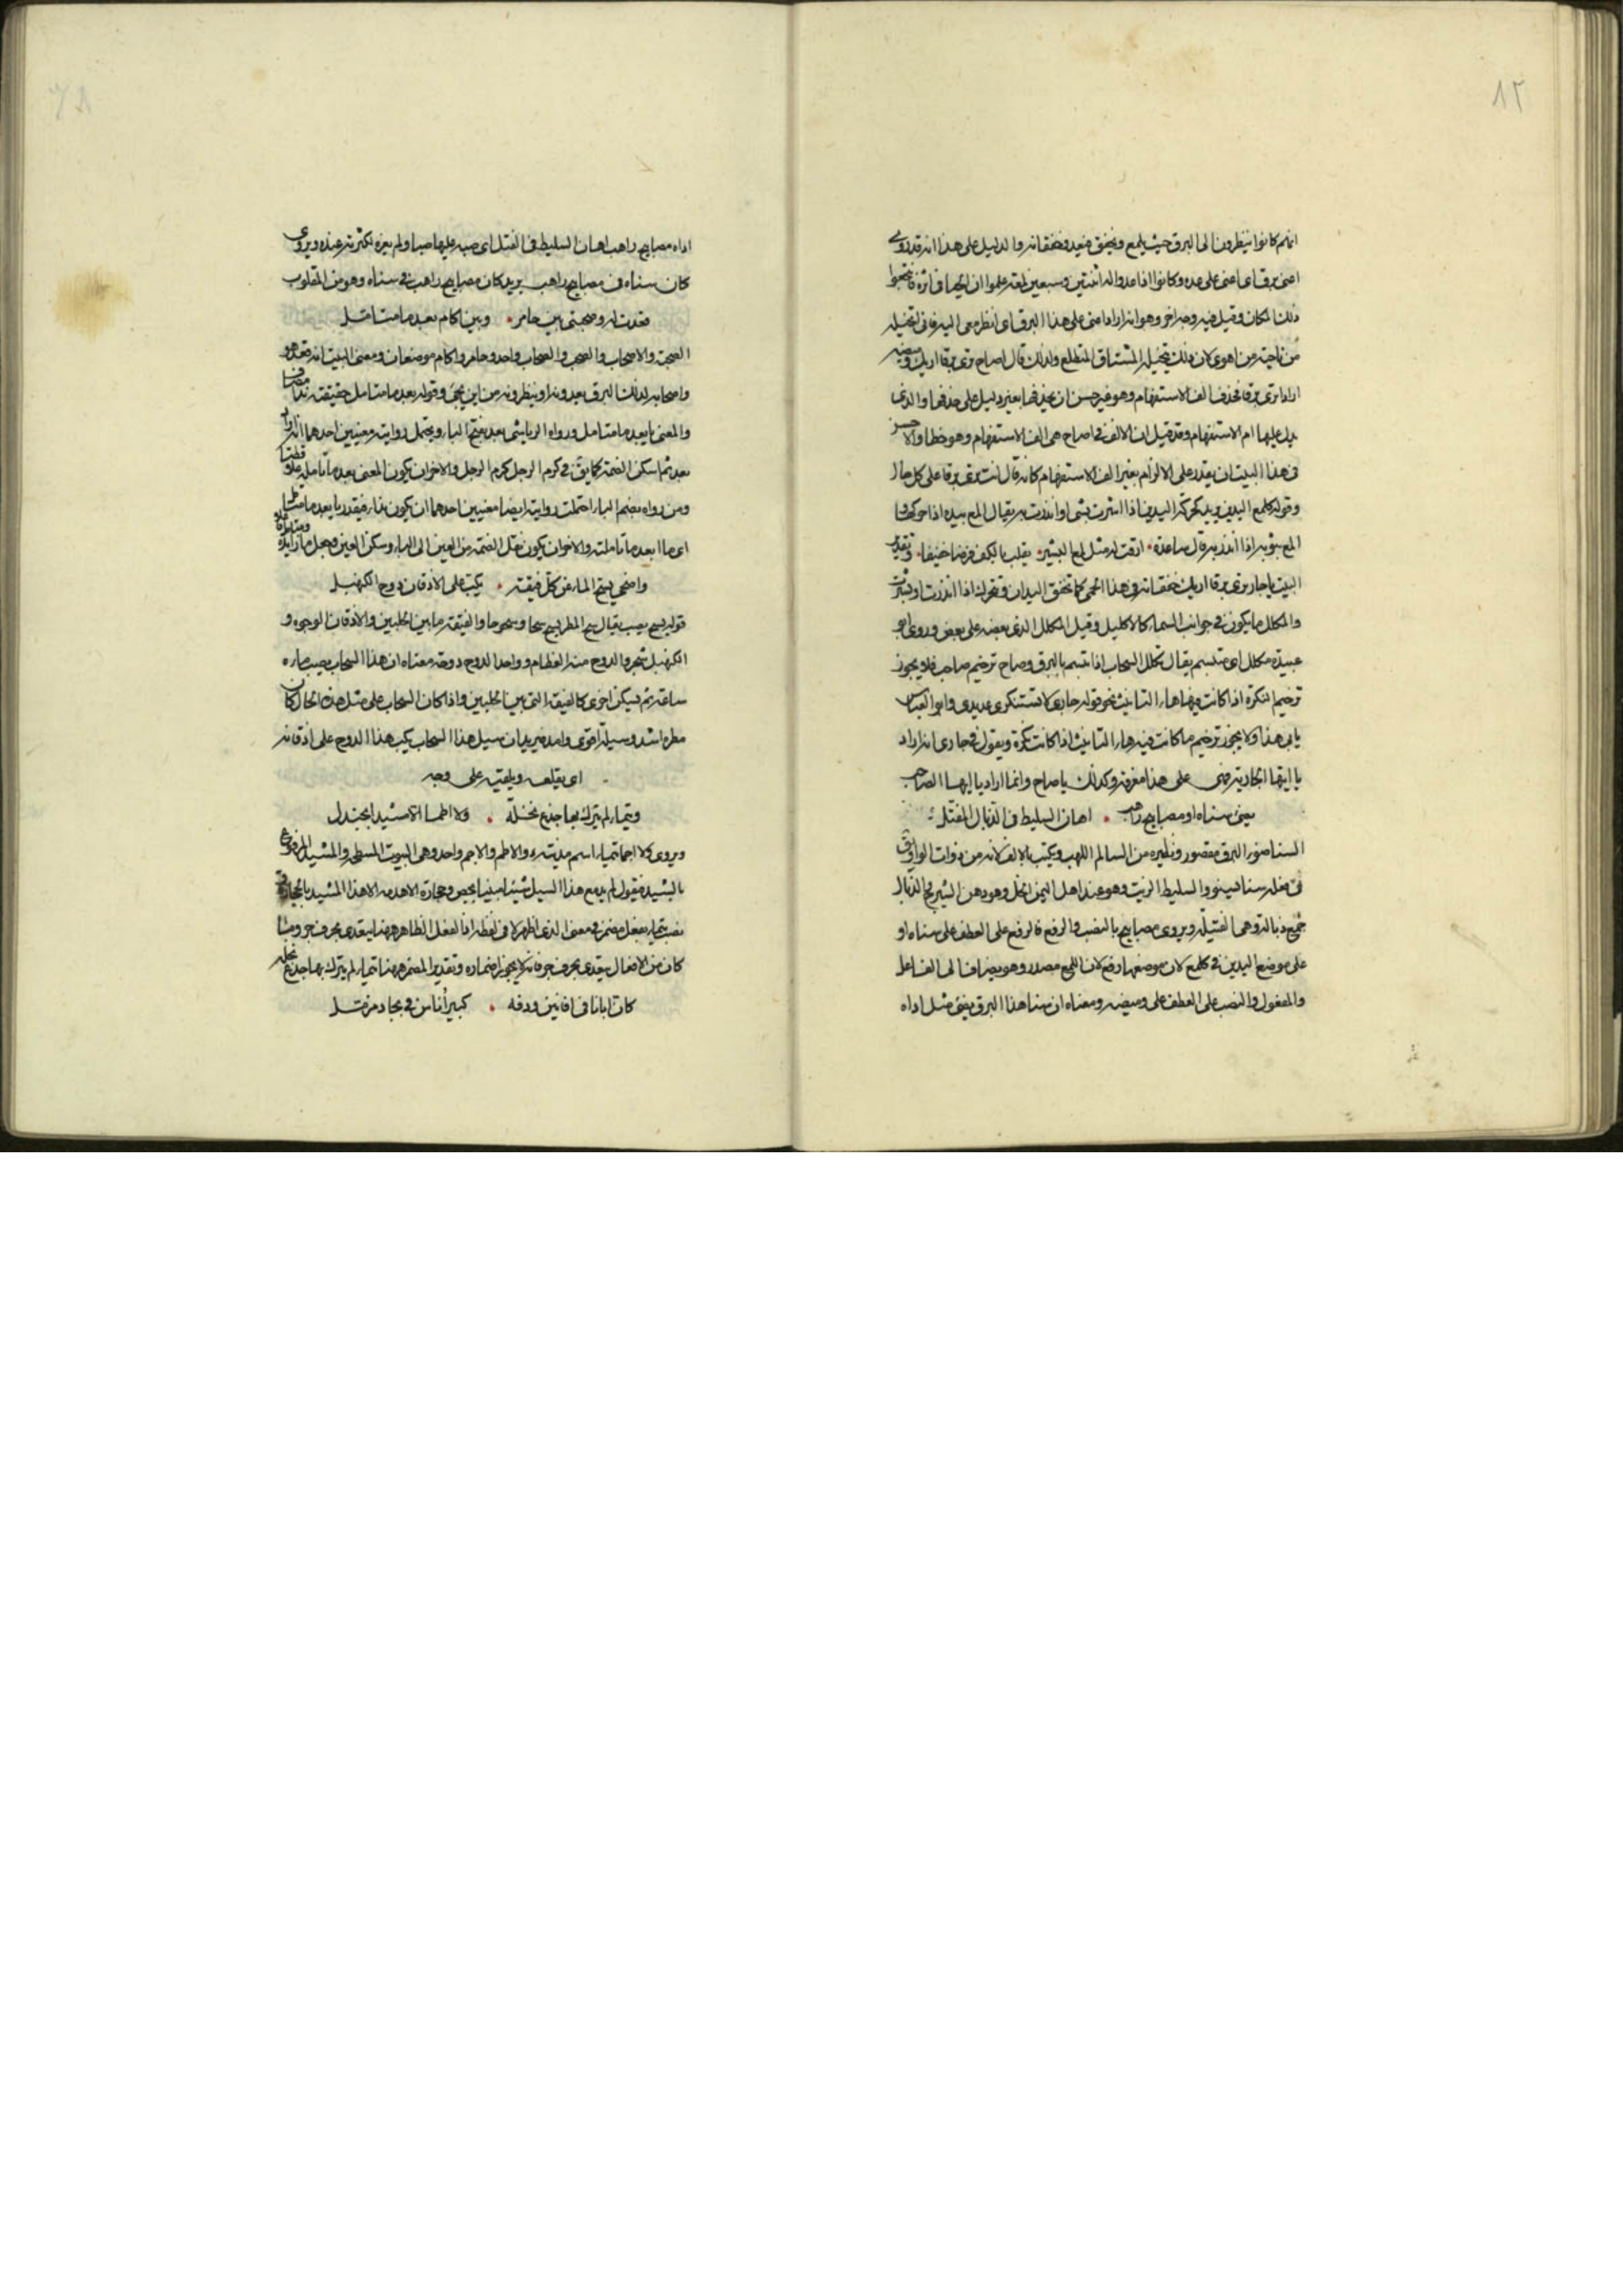 ٨٢
انهم كانوا ينظرون الى البرق حيث يلمع ويخفق فيعد خفقانه والدليل على هذا انه قد روى
اعنى برقا اى اعنى على عده وكانوا اذا عدوا له اثنتين وسبعين لمعة علموا ان
ذلك المكان وقيل فيه وجه اخر وهو انه اراد اعنى على هذا البرق اى انظر معى اليه فانى اتخيله
من ناحية من اهوى لان ذلك يتخيله المشتاق المتطلع ولذلك قال اصاح ترى برقا اريك وميضه
اراد اترى برقا فحذف الف الاستفهام وهو غير حسن ان يحذفها بغير دليل على حذفها والذى
يدل عليها ام الاستفهام وقد قيل ان الالف فى اصاح هى الف الاستفهام وهو خطا والاحسن
فى هذا البيت ان يقدر على الالزام بغير الف الاستفهام كانه قال انت ترى برقا على كل حال
وقوله كلمع اليدين يريد كحركة اليدين اذا اشرت بشى او انذرت به يقال المع بيده اذا حركها
المع بثوبه اذا انذر به قال ساعدة • ارقت له مثل لمع البشير • يقلب بالكف فرضا خفيفا • وتقدير
البيت يا حار ترى برقا اريك خفقانه فى هذا الحبى كما تخفق اليدان وتحرك اذا انذرت او بشرت
والمكلل ما يكون فى جوانب السماء كالاكليل وقيل المكلل الذى بعضه على بعض وروى ابو
عبيدة مكلل اى متبسم يقال تكلل السحاب اذا ابتسم بالبرق وصاح ترخيم صاحب فلا يجوز
ترخيم النكرة اذا كانت فيها هاء التانيث نحو قوله جارى لا تستنكرى عذيرى وابو العباس
يابى هذا ولا يجوز ترخيم ما كانت فيه هاء التانيث اذا كانت نكرة ويقول فى جارى انه اراد
يا ايتها الجارية فهى على هذا معرفة وكذلك يا صاح وانما اراد يا ايها الصاحب
يضئ سناه او مصابيح راهب • اهان السليط فى الذبال المفتل
السنا ضوء البرق مقصور ونظيره من السالم اللهب ويكتب بالالف لانه من ذوات الواو
فى فعله سنا يسنو والسليط الزيت وهو عند اهل اليمن الخل وهو دهن الشيرج الذبال
جمع ذبالة وهى الفتيلة ويروى مصابيح بالنصب والرفع فالرفع على العطف على سناه او
على موضع اليدين فى كلمع لان موضعهما رفع لان اللمع مصدر وهو يضاف الى الفاعل
والمفعول والنصب على العطف على وميضه ومعناه ان سنا هذا البرق يضئ مثل اداه
اداه مصابيح راهب اهان السليط فى الفتل اى صبه عليها صبا ولم يعزه لكثرته عنده ويروى
كان سناه فى مصابيح راهب يريد كان مصابيح راهب فى سناه وهو من المقلوب
قعدت له وصحبتى بين حامر • وبين اكام بعد ما متامل
الصحبة والاصحاب والصحب والصحاب واحد وحامر واكام موضعان ومعنى البيت انه قعد هو
واصحابه لذلك البرق يعدونه او ينظرونه من اين يجئ وقوله بعد ما متامل حقيقته نداء
والمعنى يا بعد ما متامل ورواه الرياشى بعد بفتح الباء ويحتمل روايته معنيين احدهما انه اراد
بعد ثم اسكن الضمة كما يق فى كرم الرجل كرم الرجل والاخر ان يكون المعنى بعد ما تامله
ومن رواه بضم الباء احتملت روايته ايضا معنيين احدهما ان يكون نداء فيقدر يا بعد ما متامل
اى ما ابعد ما تاملته والاخر ان يكون نقل الضمة من العين الى الباء وسكن العين وجعل ما زايدة
واضحى يسح الماء عن كل فيقة • يكب على الاذقان دوح الكنهبل
قوله يسح يصب يقال سح المطر يسح سحا وسحوحا والفيقة ما بين الحلبين والاذقان الوجوه و
الكنهبل شجر والدوح منه العظام وواحد الدوح دوحة معناه ان هذا السحاب يصب ماءه
ساعة ثم يسكن اخرى كالفيقة التى بين الحلبين واذا كان السحاب على مثل هذه الحال كان
مطره اشد وسيله اقوى وامد فيريد ان سيل هذا السحاب يكب هذا الدوح على اذقانه
اى يقلعه ويلقيه على وجهه
وتيماء لم يترك بها جذع نخلة • ولا اطما الا مشيدا بجندل
ويروى ولا اجما تيماء اسم مدينة والاطم والاجم واحد وهى البيوت المسطحه والمشيد المرفوع
بالشيد فيقول لم يدع هذا السيل شيئا مبنيا بجص وحجارة الا هدمه الا هذا المشيد بالحجارة
نصب تيماء بفعل مضمر فى معنى الذى اظهر لا فى لفظه اذ الفعل الظاهر ههنا يتعدى بحرف جر وما
كان من الافعال يتعدى بحرف جر فانه لا يجوز اضماره وتقدير المضمر ههنا تيماء لم يترك بها جذع نخلة
كان ابانا فى افانين ودقه • كبير اناس فى بجاد مزمل